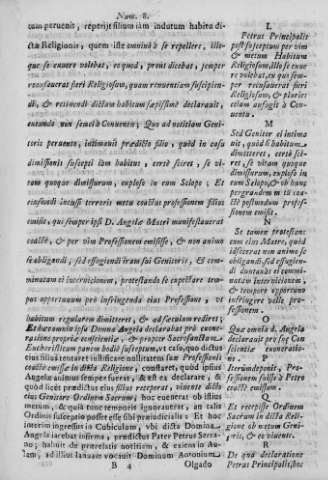 Num. 8.
cum peruenit, reperijt filium iam indutum habitu di-
ctæ Religionis, quem iste omninò à se repellere, ille-
que se exuere volebat, eoquod, prout dicebat, semper
recusauerat fieri Religiosum, quam renuentiam suscipien-
di, & retinendi dictum habitum sæpissimè declarauit,
eundo non semel à Conuentu; Quo ad notitiam Geni-
toris peruento, intimauit prædicto filio, quòd in casu
dimissionis suscepti iam habitus, certò sciret, se vi-
tam quoque dimissurum, explose in eum Sclopo; Et
eiusmodi incusso terroris metu coactus professionem filius
emisit, qui semper ipsi D. Angelæ Matri manifestauerat
coactè, & per vim Professionem emisisse, & non animo
se obligandi, sed effugiendi iram sui Genitoris, & com-
minatam ei internecionem, protestando se expectare tem-
pus opportunum pro infringenda eius Professione, vt
habitum regularem dimitteret, & ad sæculum rediret;
Et hæc omnia ipsa Domna Angela declarabat pro exone-
ratione propriæ conscientiæ, & propter Sacrosanctam
Eucharisticum panem hodiè susceptum, vt casu, quo dictus
eius filius tentaret iustificare nullitatem suæ Professionis
coactè emissæ in dicta Religione, constaret, quod ipsius
Angelæ animum semper fuerit, & est ea declarare; &
quod licèt prædictus eius filius receperit, viuente dicto
eius Genitore Ordinem Sacrum; hoc euenerat ob illius
metum, & quia tunc temporis ignorauerat, an talis
Ordinis susceptio posset esse sibi præiudicialis: Et hoc
interim ingressus in Cubiculum, vbi dicta Domina
Angela iacebat infirma, prædictus Pater Petrus Serra-
no; habuit de præmissis notitiam, & exiens in Au-
lam, ad illius Ianuam vocauit Dominum Antonium
B 4 Olgado
L
Petrus Principalis
post susceptum per vim
& metum Habitum
Religiosum, illo se exue-
re volebat, eo quod sem-
per recusauerat fieri
Religiosus, & pluries
etiam aufugit à Con-
uentu.
M
Sed Genitor ei intima-
uit, quòd si habitum
dimitteret, certò sci-
ret, se vitam quoque
dimissurum, explose in
eum Sclopo, & ob hunc
pergrandem metum coa-
ctè postmodum profes-
sionem emisit.
N
Se tamen protestan-
tem eius Matre, quòd
id fecerat non animo se
obligandi, sed effugien-
di duntaxat ei commi-
natam internecionem,
& tempore opportuno
infringere velle pro-
fessionem.
O
Quæ omnia d. Angela
declarauit pro suæ Con-
scientiæ exoneratio-
ne.
P
Iterum deponit, Pro-
fessionem fuisse à Petro
coactè emissam.
Q
Et recepisse Ordinem
Sacrum in dicta Reli-
gione ob metum Geni-
toris, & eo viuente.
R
De qua declaratione
Petrus Principalis, hoc